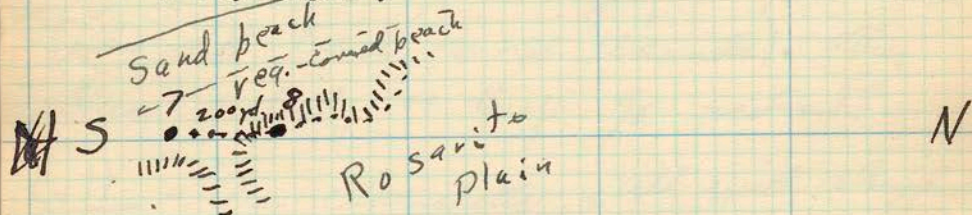 Sand beach
veg.-covered beach
7 200 yd 8
S N
Rosarito
plain